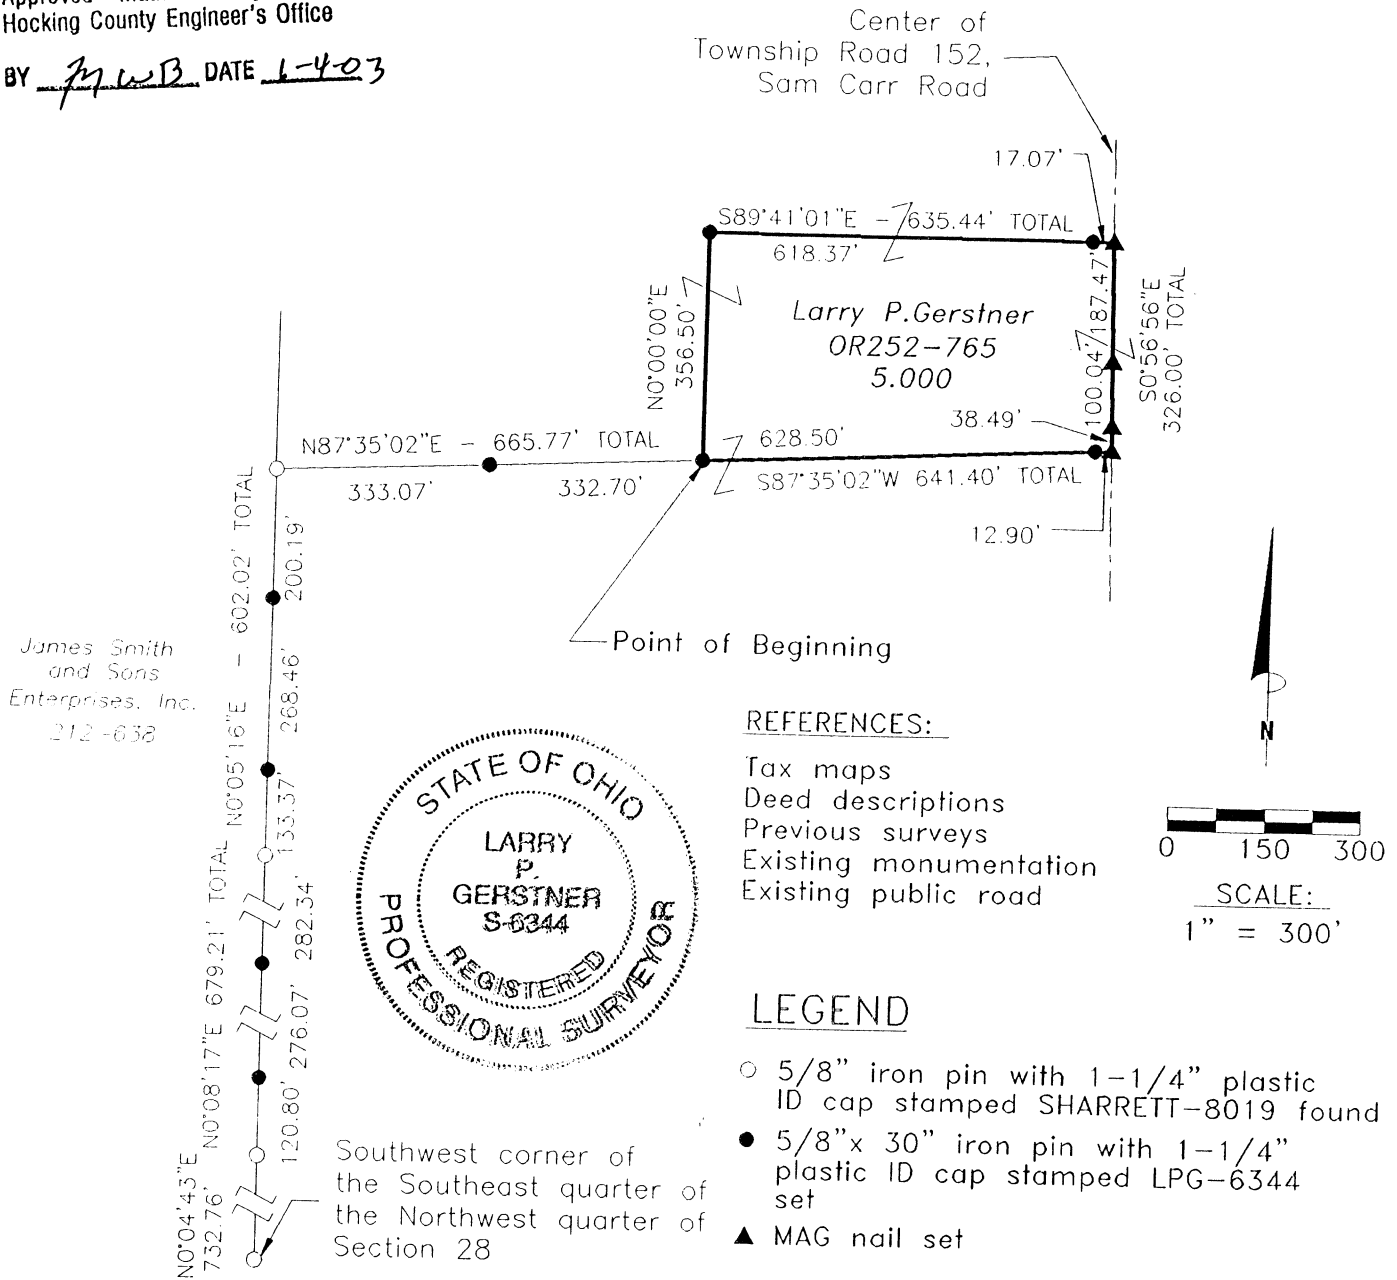 Hocking County Engineer's Office
BY MWB DATE 1-4-03
Center of
Township Road 152,
Sam Carr Road
17.07'
S89°41'01"E - 635.44' TOTAL
618.37'
N0°00'00"E
356.50'
Larry P.Gerstner
OR252-765
5.000
187.47'
100.04'
S0°56'56"E
326.00' TOTAL
38.49'
628.50'
S87°35'02"W 641.40' TOTAL
12.90'
N87°35'02"E - 665.77' TOTAL
333.07'
332.70'
Point of Beginning
N0°05'16"E - 602.02' TOTAL
200.19'
268.46'
133.37'
James Smith
and Sons
Enterprises, Inc.
212-638
N0°08'17"E 679.21' TOTAL
282.34'
276.07'
120.80'
N0°04'43"E
732.76'
STATE OF OHIO
LARRY
P.
GERSTNER
S-6344
REGISTERED
PROFESSIONAL SURVEYOR
Southwest corner of
the Southeast quarter of
the Northwest quarter of
Section 28
REFERENCES:
Tax maps
Deed descriptions
Previous surveys
Existing monumentation
Existing public road
N
0 150 300
SCALE:
1" = 300'
LEGEND
5/8" iron pin with 1-1/4" plastic
ID cap stamped SHARRETT-8019 found
5/8"x 30" iron pin with 1-1/4"
plastic ID cap stamped LPG-6344
set
MAG nail set